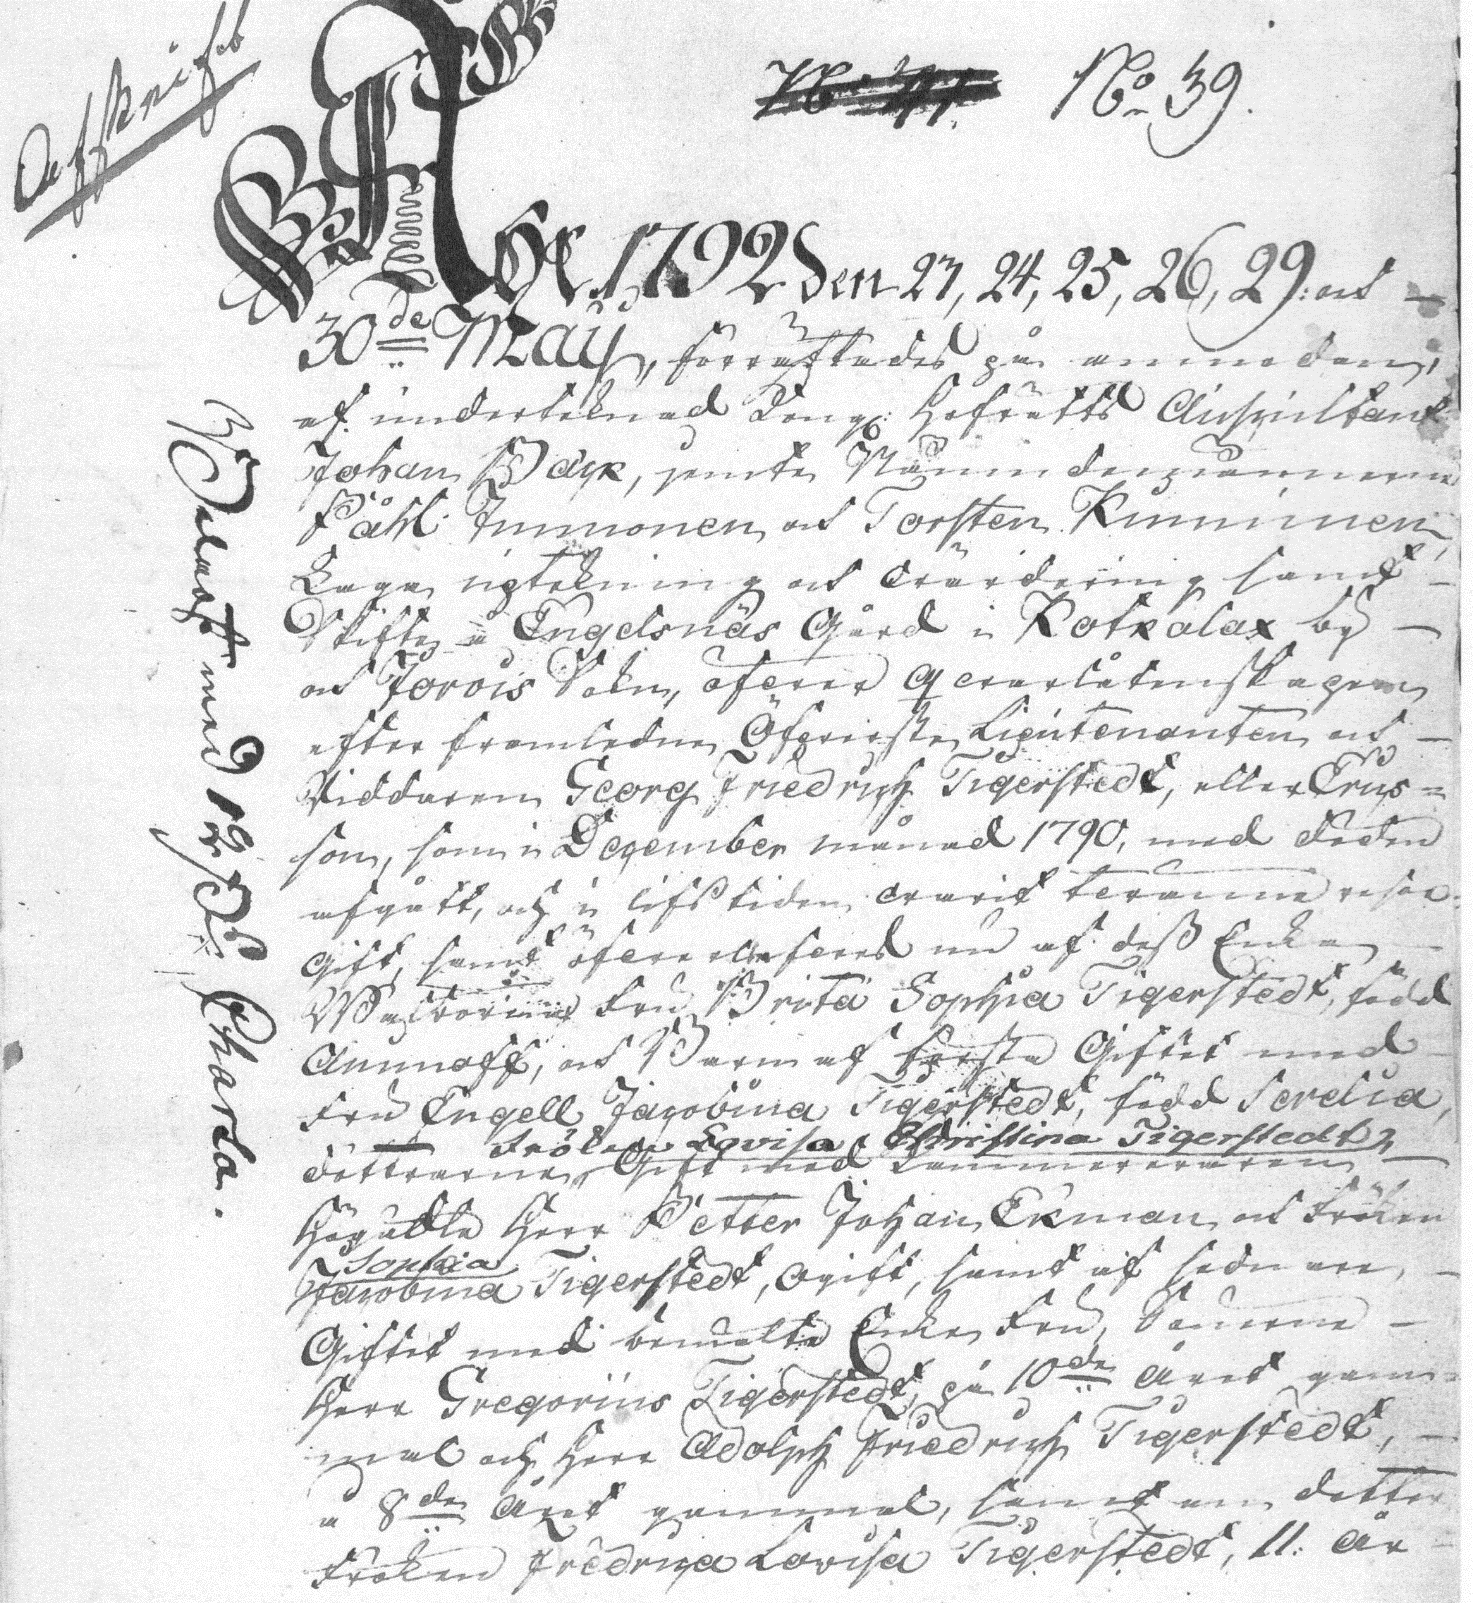 Affskrift
No 39.
Åhr 1792 den 23, 24, 25, 26, 29: och
30de Maÿ, förrättades på anmodan,
af underteknad Kongl: Hofrätts Auscultant
Johan Backx, jemte Nämndemännerne
Påhl Immonen och Torsten Kinninen,
Laga upteckning och värdering samt
Skifte å Engelsnäs Gård i Kotkalax by
och Jorois Sokn, öfver qvarlåtenskapen
efter framledne Öfverste Lieutenanten och
Riddaren Georg Friedrich Tigerstedt, eller Crus=
son, som i December månad 1790, med döden
afgått, och i lifstiden varit tvänne resor
Gift, samt öfverlefves nu af dess Enka
Fru Brita Sophia Tigerstedt, född
Aminoff, och Barn af Första Giftet med
Fru Engell Jacobina Tigerstedt, född Serelia,
Fröken Lovisa Christina Tigerstedt,
döttrarne Gift med Kammereraren
Högädle Herr Petter Johan Ekman och Fröken
Sophia
Jacobina Tigerstedt, ogift, samt af sednare
Giftet med bemälte Enke Fru, Sönerne
Herr Gregorius Tigerstedt, på 10de Året gam=
mal och Herr Adolph Friedrich Tigerstedt,
å 8de Året gammal, samt en dotter
Fröken Fredrica Lovisa Tigerstedt, 11: År
Belagt med 12 s: Charta.